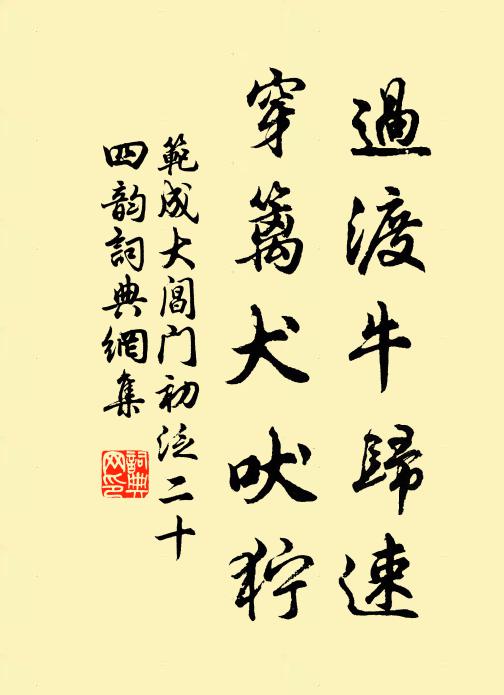 過渡牛歸速
穿籬犬吠狞
範成大閶门初泛二十
四韵詞典網集
詞典网印